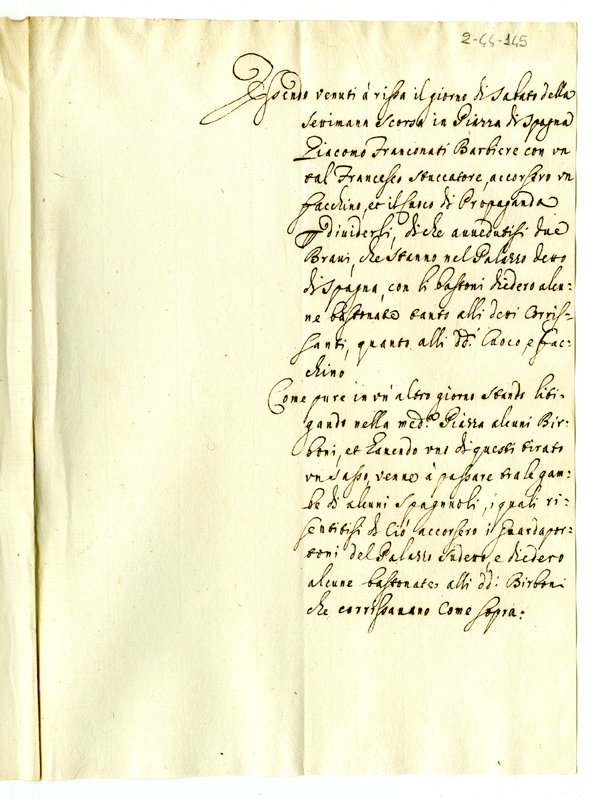 2-44-145
Essendo venuti à rissa il giorno di Sabato della
settimana scorsa in Piazza di Spagna
Giacomo Franconati Barbiere con un
tal Francesco Stuccatore, accorsero un
facchino, et il Cuoco di Propaganda
dividerli, di che avvedutisi due
Bravi, che stanno nel Palazzo detto
di Spagna, con li bastoni diedero alcu=
ne bastonate tanto alli detti Corris=
santi, quanto alli dd.i Cuoco, e fac=
chino
Come pure in un'altro giorno stando liti=
gando nella med.a Piazza alcuni Bir=
boni, et havendo uno di questi tirato
un sasso, venne à passare tra le gam=
be di alcuni Spagnuoli, i quali ri=
sentitisi di Ciò accorsero i Guardapor=
toni del Palazzo sudetto, e diedero
alcune bastonate alli dd.i Birboni
che corrissavano Come sopra.